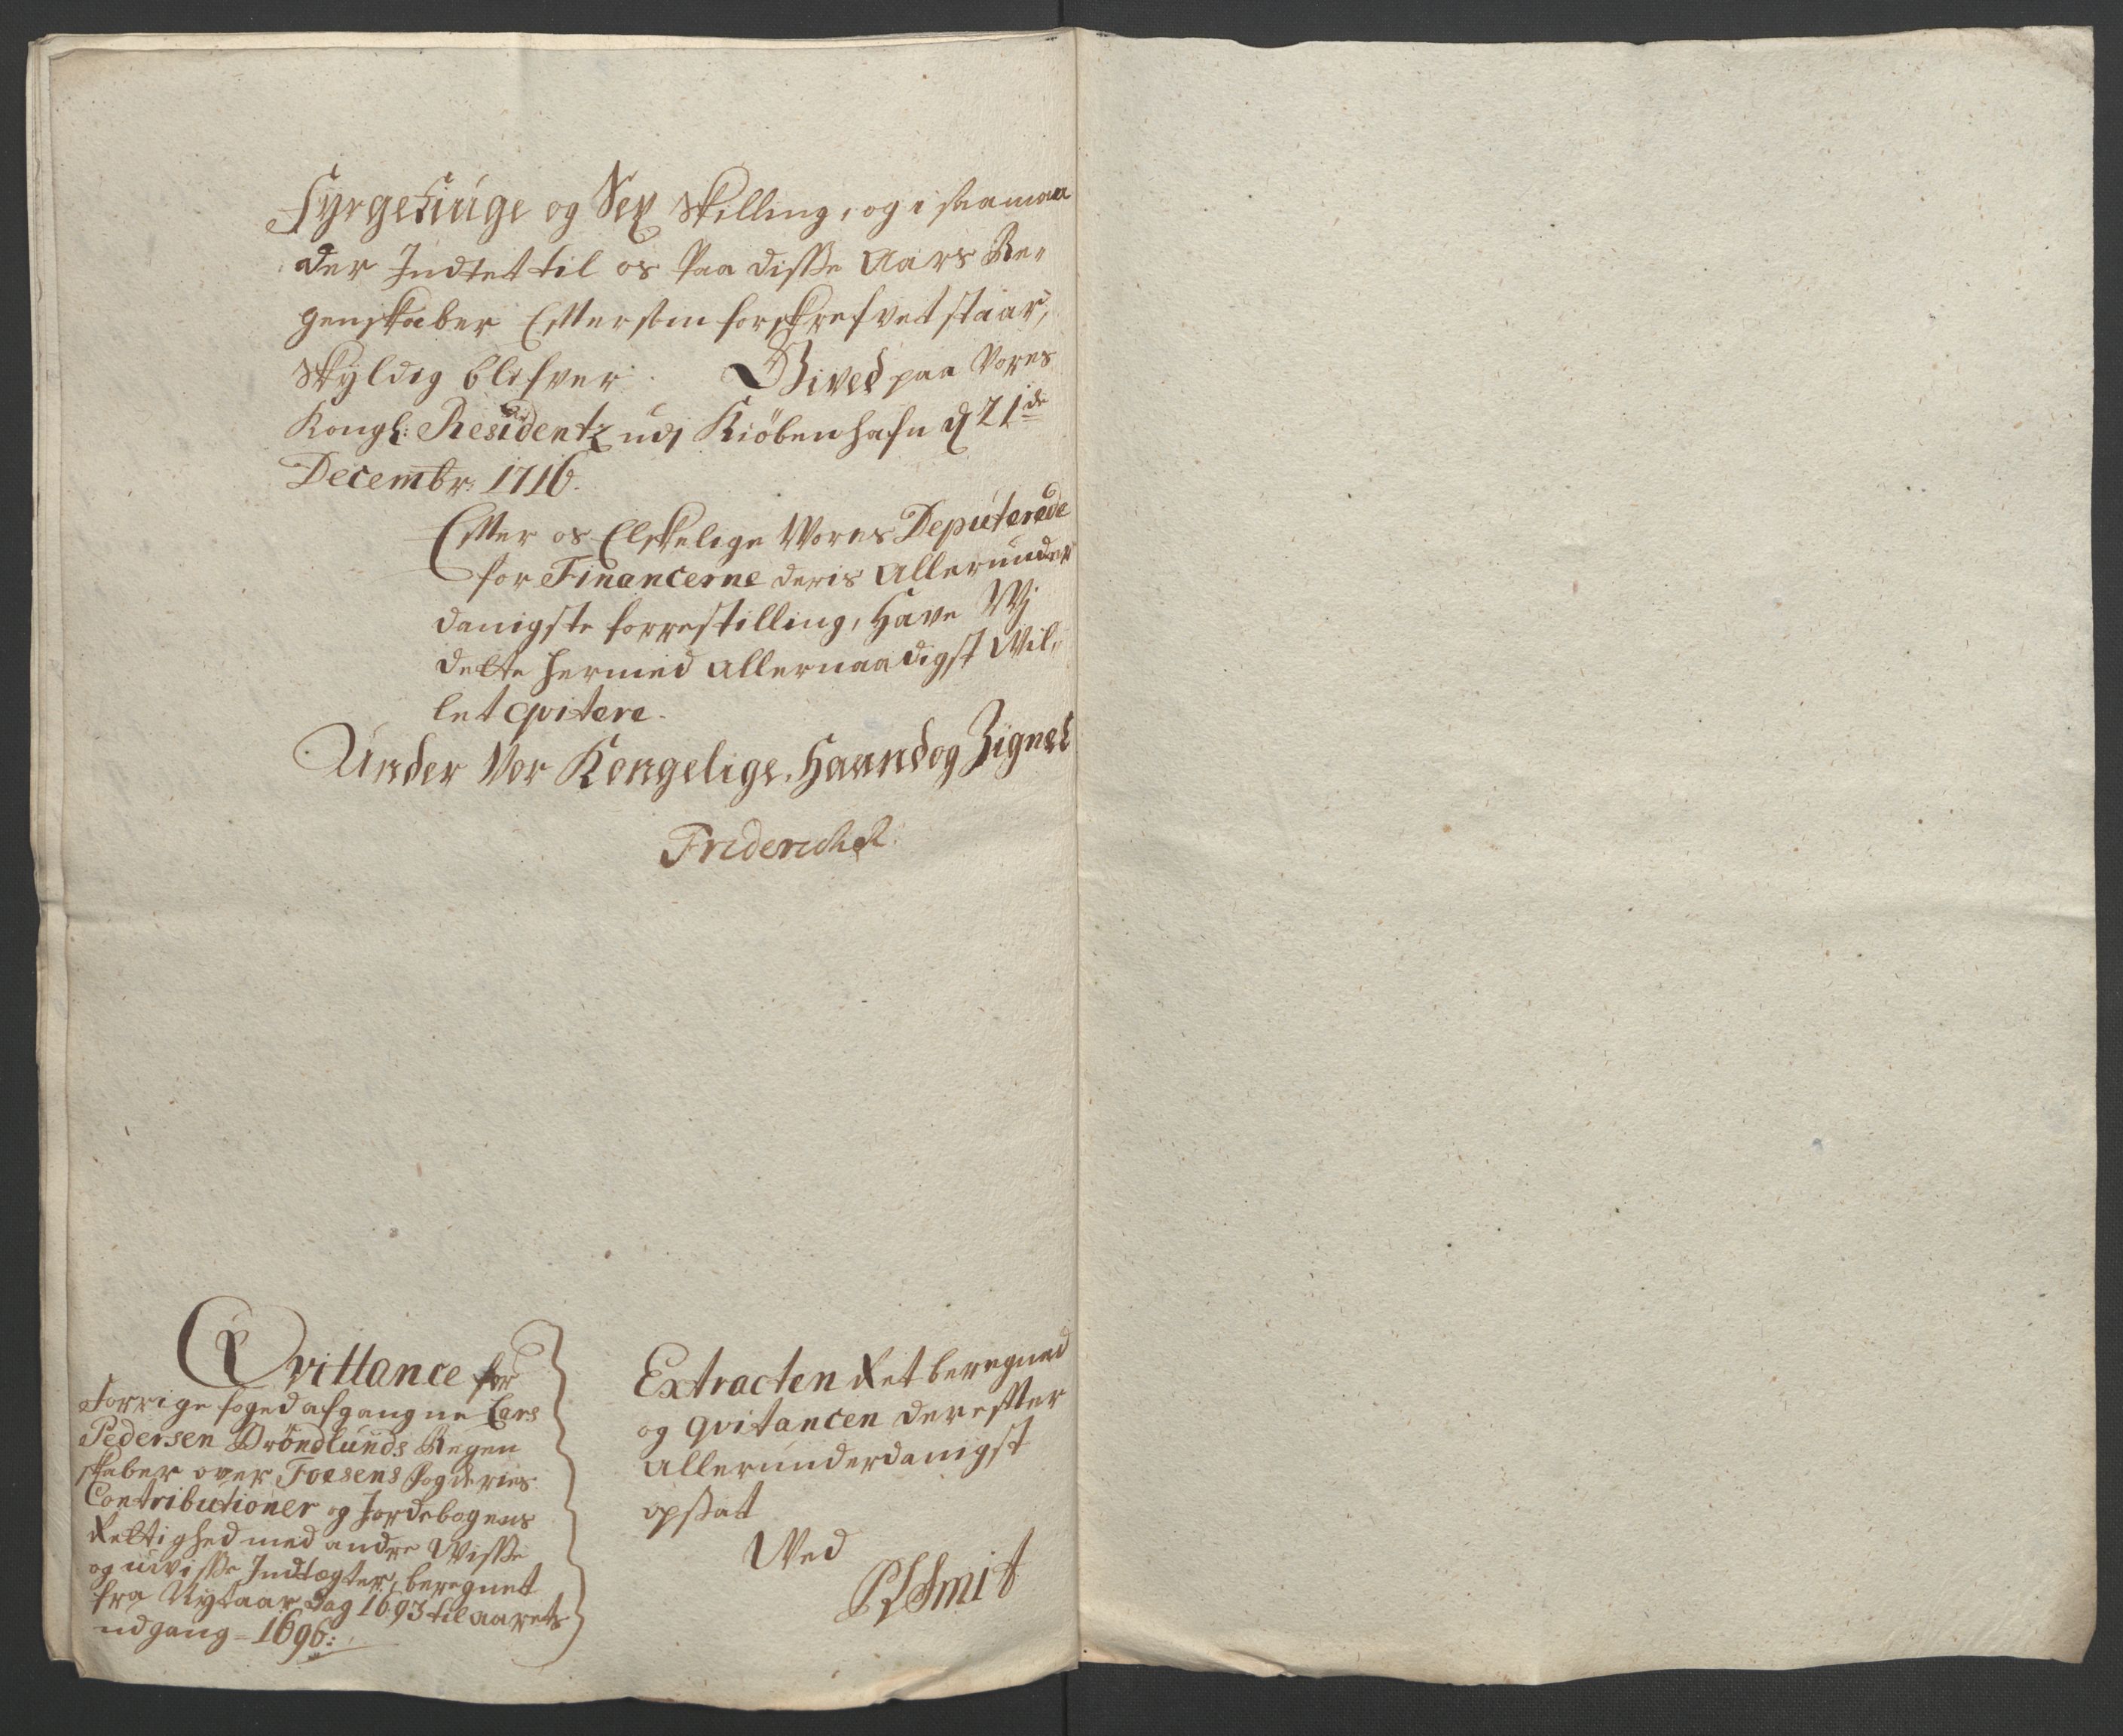 Fyrgetiuge og Sex Skilling, og i saamaa
der Indtet til os Paa disse Aars Re-
genskaber Effter som forskrefvet staar,
Skyldig blifver. Gived paa Vores
Kongl: Residentz udj Kiöbenhafn d 21de
Decembr: 1716.
Effter os Elskelige Wores Deputerede
for Financerne deris Allerunder
danigste forrestilling, Have Wj
dette hermed Allernaadigst Wil-
let qvitere.
Under Vor Kongelige Haand og Zignet
Friderich R
Qvittance for
Forrige foged afgangne Lars
Pedersen Bröndlunds Regen
skaber over Foesens Fogderies
Contributioner og Jordebogens
Rettighed med andre Wisse
og uwisse Indtægter, beregnet
fra Nytaars Dag 1693 til aarets
udgang - 1696:
Extracten Ret beregned
og qvitancen dereffter
Allerunderdanigst
opsat
Wed
Smit